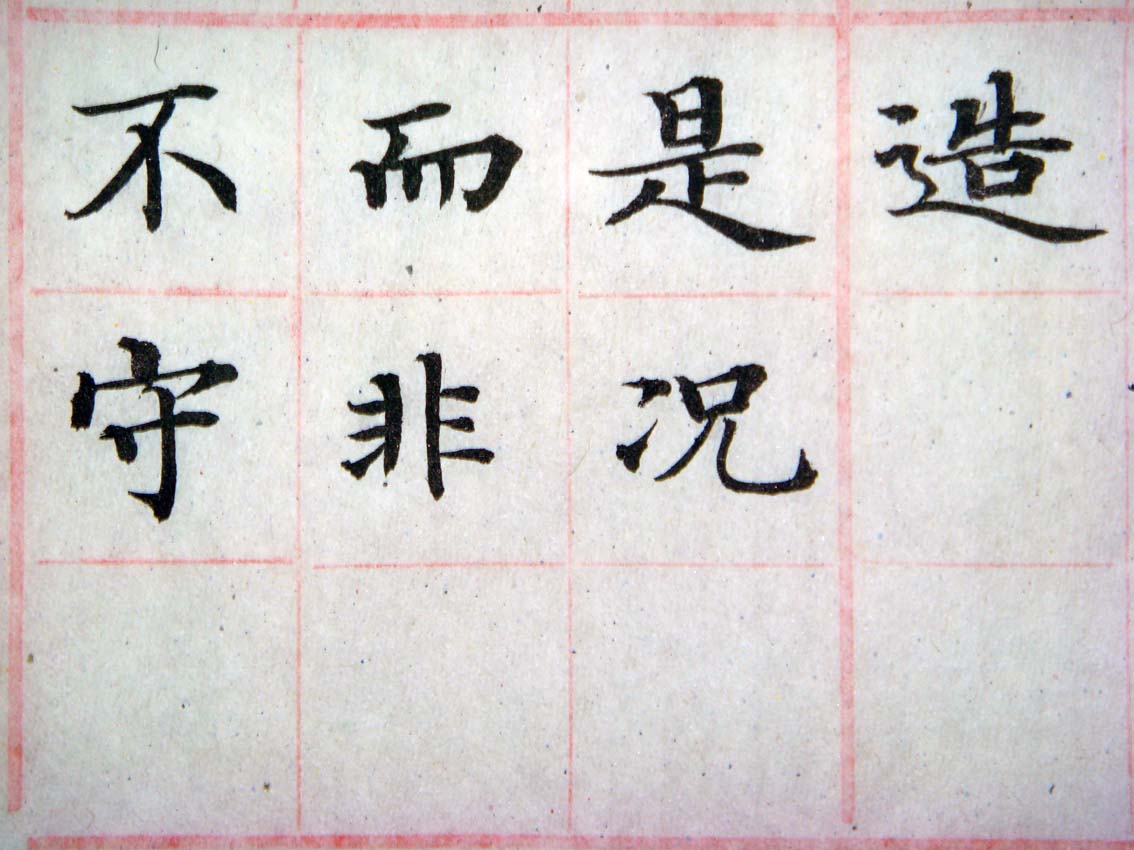 不而是造
守非况